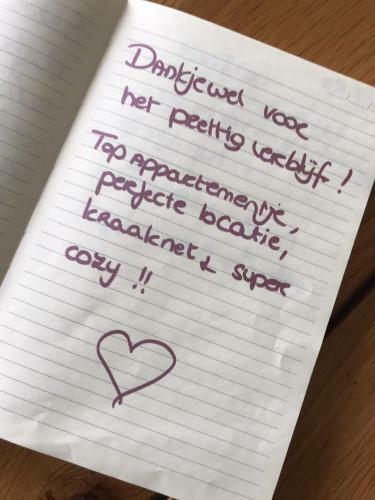 Dankjewel voor
het prettig verblijf!
Top appartementje,
perfecte locatie,
kraaknet & super
cozy !!